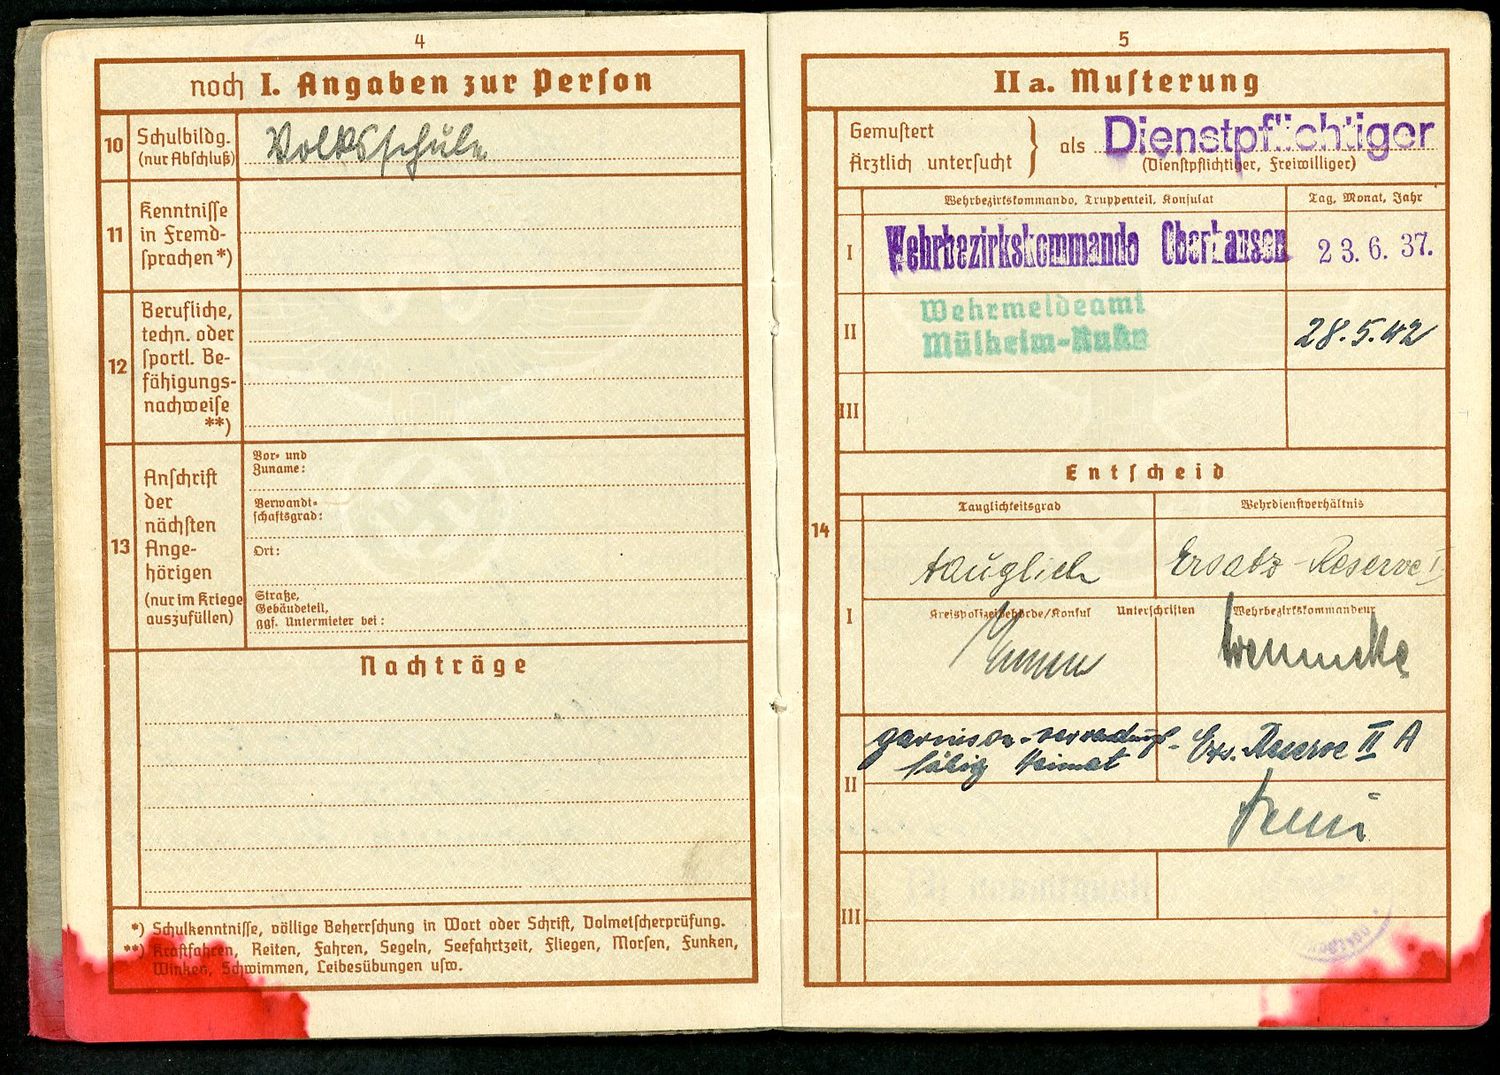 4
noch I. Angaben zur Person
10
Schulbildg.
(nur Abschluß)
Volksschule
11
Kenntnisse
in Fremd-
sprachen*)
12
Berufliche,
techn. oder
sportl. Be-
fähigungs-
nachweise
**)
13
Anschrift
der
nächsten
Ange-
hörigen
(nur im Kriege
auszufüllen)
Vor- und
Zuname:
Verwandt-
schaftsgrad:
Ort:
Straße,
Gebäudeteil,
ggf. Untermieter bei:
Nachträge
*) Schulkenntnisse, völlige Beherrschung in Wort oder Schrift, Dolmetscherprüfung.
**) Kraftfahren, Reiten, Fahren, Segeln, Seefahrtzeit, Fliegen, Morsen, Funken,
Winken, Schwimmen, Leibesübungen usw.
5
IIa. Musterung
14
Gemustert
Ärztlich untersucht
als Dienstpflichtiger
(Dienstpflichtiger, Freiwilliger)
Wehrbezirkskommando, Truppenteil, Konsulat
Tag, Monat, Jahr
I
Wehrbezirkskommando Oberhausen
23.6.37.
II
Wehrmeldeamt
Mülheim-Ruhr
28.5.42
III
Entscheid
Tauglichkeitsgrad
Wehrdienstverhältnis
I
tauglich
Ersatz-Reserve I
Kreispolizeibehörde/Konsul
Unterschriften
Wehrbezirkskommandeur
II
garnison-verwendungs-
fähig Heimat
Ers. Reserve II A
III